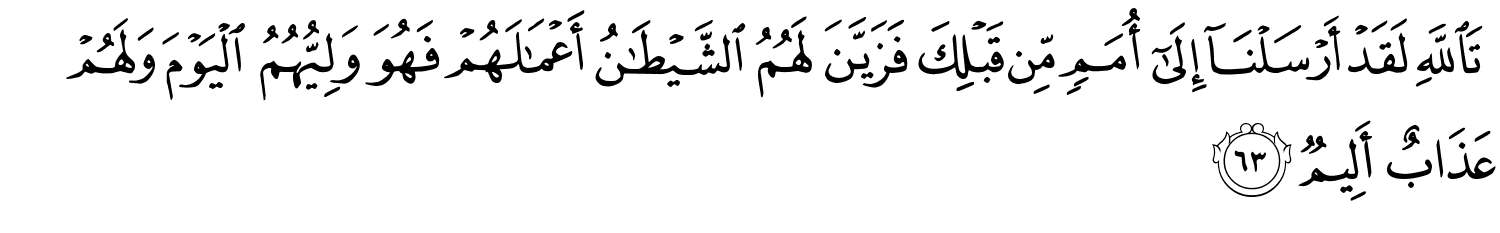 تَٱللَّهِ لَقَدۡ أَرۡسَلۡنَآ إِلَىٰٓ أُمَمٖ مِّن قَبۡلِكَ فَزَيَّنَ لَهُمُ ٱلشَّيۡطَٰنُ أَعۡمَٰلَهُمۡ فَهُوَ وَلِيُّهُمُ ٱلۡيَوۡمَ وَلَهُمۡ
عَذَابٌ أَلِيمٞ ٦٣